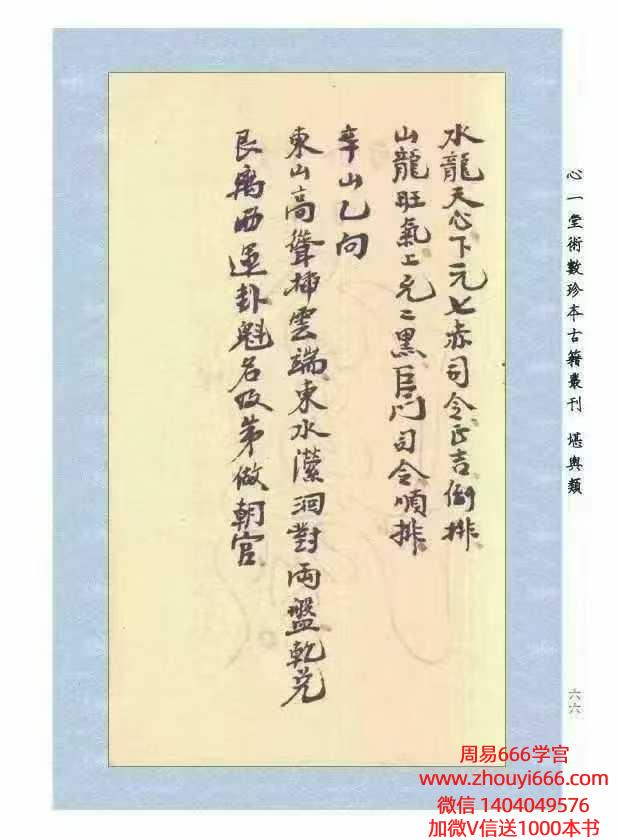 水龍天心下元七赤司令正吉倒排
山龍旺氣上元二黑巨门司令順排
辛山乙向
東山高聳插雲端東水瀠洄對両盤乾兑
艮离酉運卦魁名及第做朝官
心一堂術數珍本古籍叢刊 堪輿類
六六
周易666学宫
www.zhouyi666.com
微信 1404049576
加微V信送1000本书